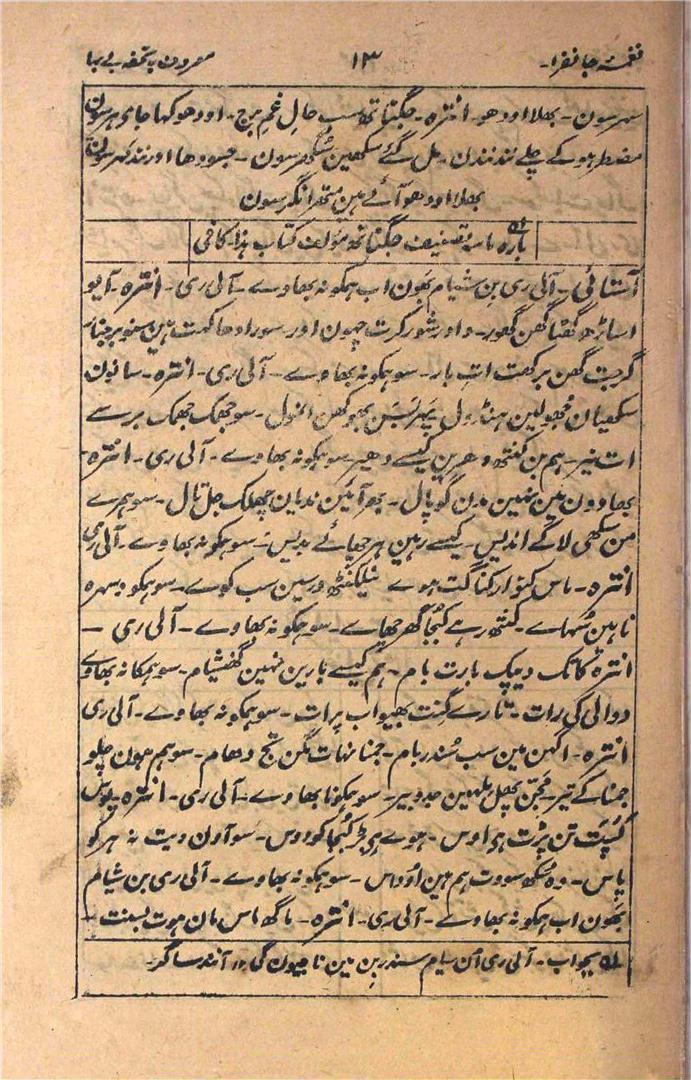 نغمۂ جانفزا ۱۳ معروف بہ تحفۂ بے بہا
سہرسون۔ بھلا اودھو۔ انترہ۔ جگناتھ سب حالِ غم برج۔ اودھو کہا جاے ہر سون
مضطر ہو کے چلے نند نندن۔ مل گئے سکھین سُگھر سون۔ جسودھا اور نند مہر سون
بھلا اودھو آئے ہین متھرا نگر سون
بارہ ماسہ تصنیف جگناتھ مؤلف کتاب ہذا۔ کافی
آستائی۔ آلی ری بن شیام بھون اب ہمکو نہ بھاوے۔ آلی ری۔ انترہ۔ آیو
اساڑھ گھٹا گھن گھور۔ دادر شور کرت چہون اور۔ سو رادھا کہت ہین
گرجت گھن برکھت ات بار۔ سو ہمکو نہ بھاوے۔ آلی ری۔ انترہ۔ سانون
سکھیان جھولین ہنڈول پہر بسن بھوکھن انمول۔ سو جھمک جھمک برسے
ات نیر۔ ہم بن کنتھ دھرین کیسے دھیر۔ سو ہمکو نہ بھاوے۔ آلی ری۔ انترہ
بھادون مین نہین مدن گوپال۔ بھر آئین ندیان چھلک جل تال۔ سو ہمرے
من سکھی لاگے اندیس۔ کیسے رہین ہر چھائے بدیس۔ سو ہمکو نہ بھاوے۔ آلی ری
انترہ۔ ماس کنوار کناگت ہوے نیلکنٹھ درسین سب کوے۔ سو ہمکو دسہرہ
ناہین سُہاے۔ کنتھ رہے کبجا گھر چھاے۔ سو ہمکو نہ بھاوے۔ آلی ری۔
انترہ کاتک دیپک بارت بام۔ ہم کیسے بارین نہین گھنشیام۔ سو ہمکا نہ بھاوے
دوالی کی رات۔ تارے گنت بھیو اب پرات۔ سو ہمکو نہ بھاوے۔ آلی ری
انترہ۔ اگہن مین سب سُندر بام۔ جمنا نہات مگن تج دھام۔ سو ہم ہون چلو
جمنا کے تیر۔ مُجتن چھل ملہین جدوبیر۔ سو ہمکو نا بھاوے۔ آلی ری۔ انترہ پوس
کنپت تن پڑت ہی اوس۔ ہوے ہی بڑ کُبجا کو دوس۔ سو آون دیت نہ ہر کو
پاس۔ وہ سُکھ سووت ہم ہین اُوداس۔ سو ہمکو نہ بھاوے۔ آلی ری بن شیام
بھون اب ہمکو نہ بھاوے۔ آلی ری۔ انترہ۔ ماگھ ماس مان ہوت بسنت۔
بجواب۔ آلی ری اُن سیام سندر بن مین نا جیون گی ۱۱ آنند ساگر